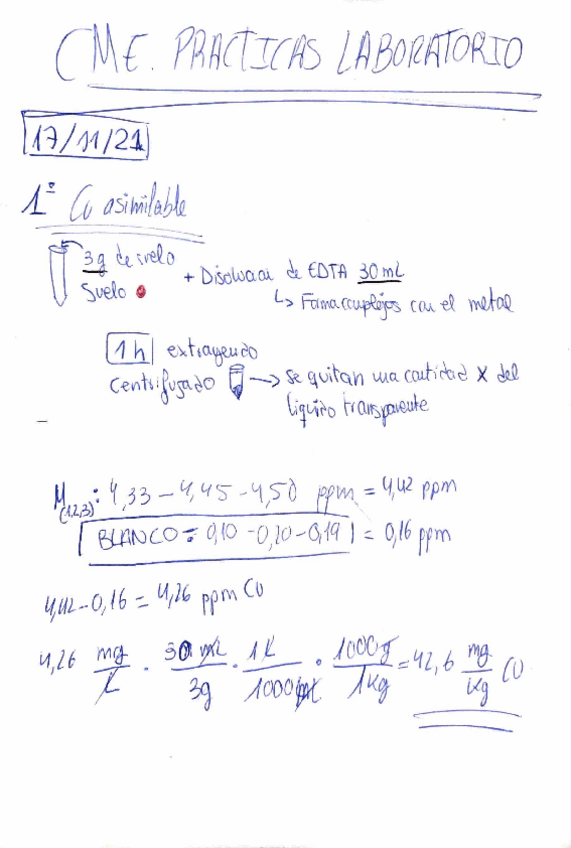 CME. PRACTICAS LABORATORIO
17/11/21
1º Cu asimilable
3g de suelo
Suelo
+ Disolución de EDTA 30 mL
↳ Forma complejos con el metal
1 h extrayendo
Centrifugado → se quitan una cantidad X del
líquido transparente
M(1,2,3): 4,33 - 4,45 - 4,50 ppm = 4,42 ppm
BLANCO = 0,10 - 0,20 - 0,19 = 0,16 ppm
4,42 - 0,16 = 4,26 ppm CU
4,26 mg/L · 30 mL/3g · 1L/1000 mL · 1000g/1kg = 42,6 mg/kg CU